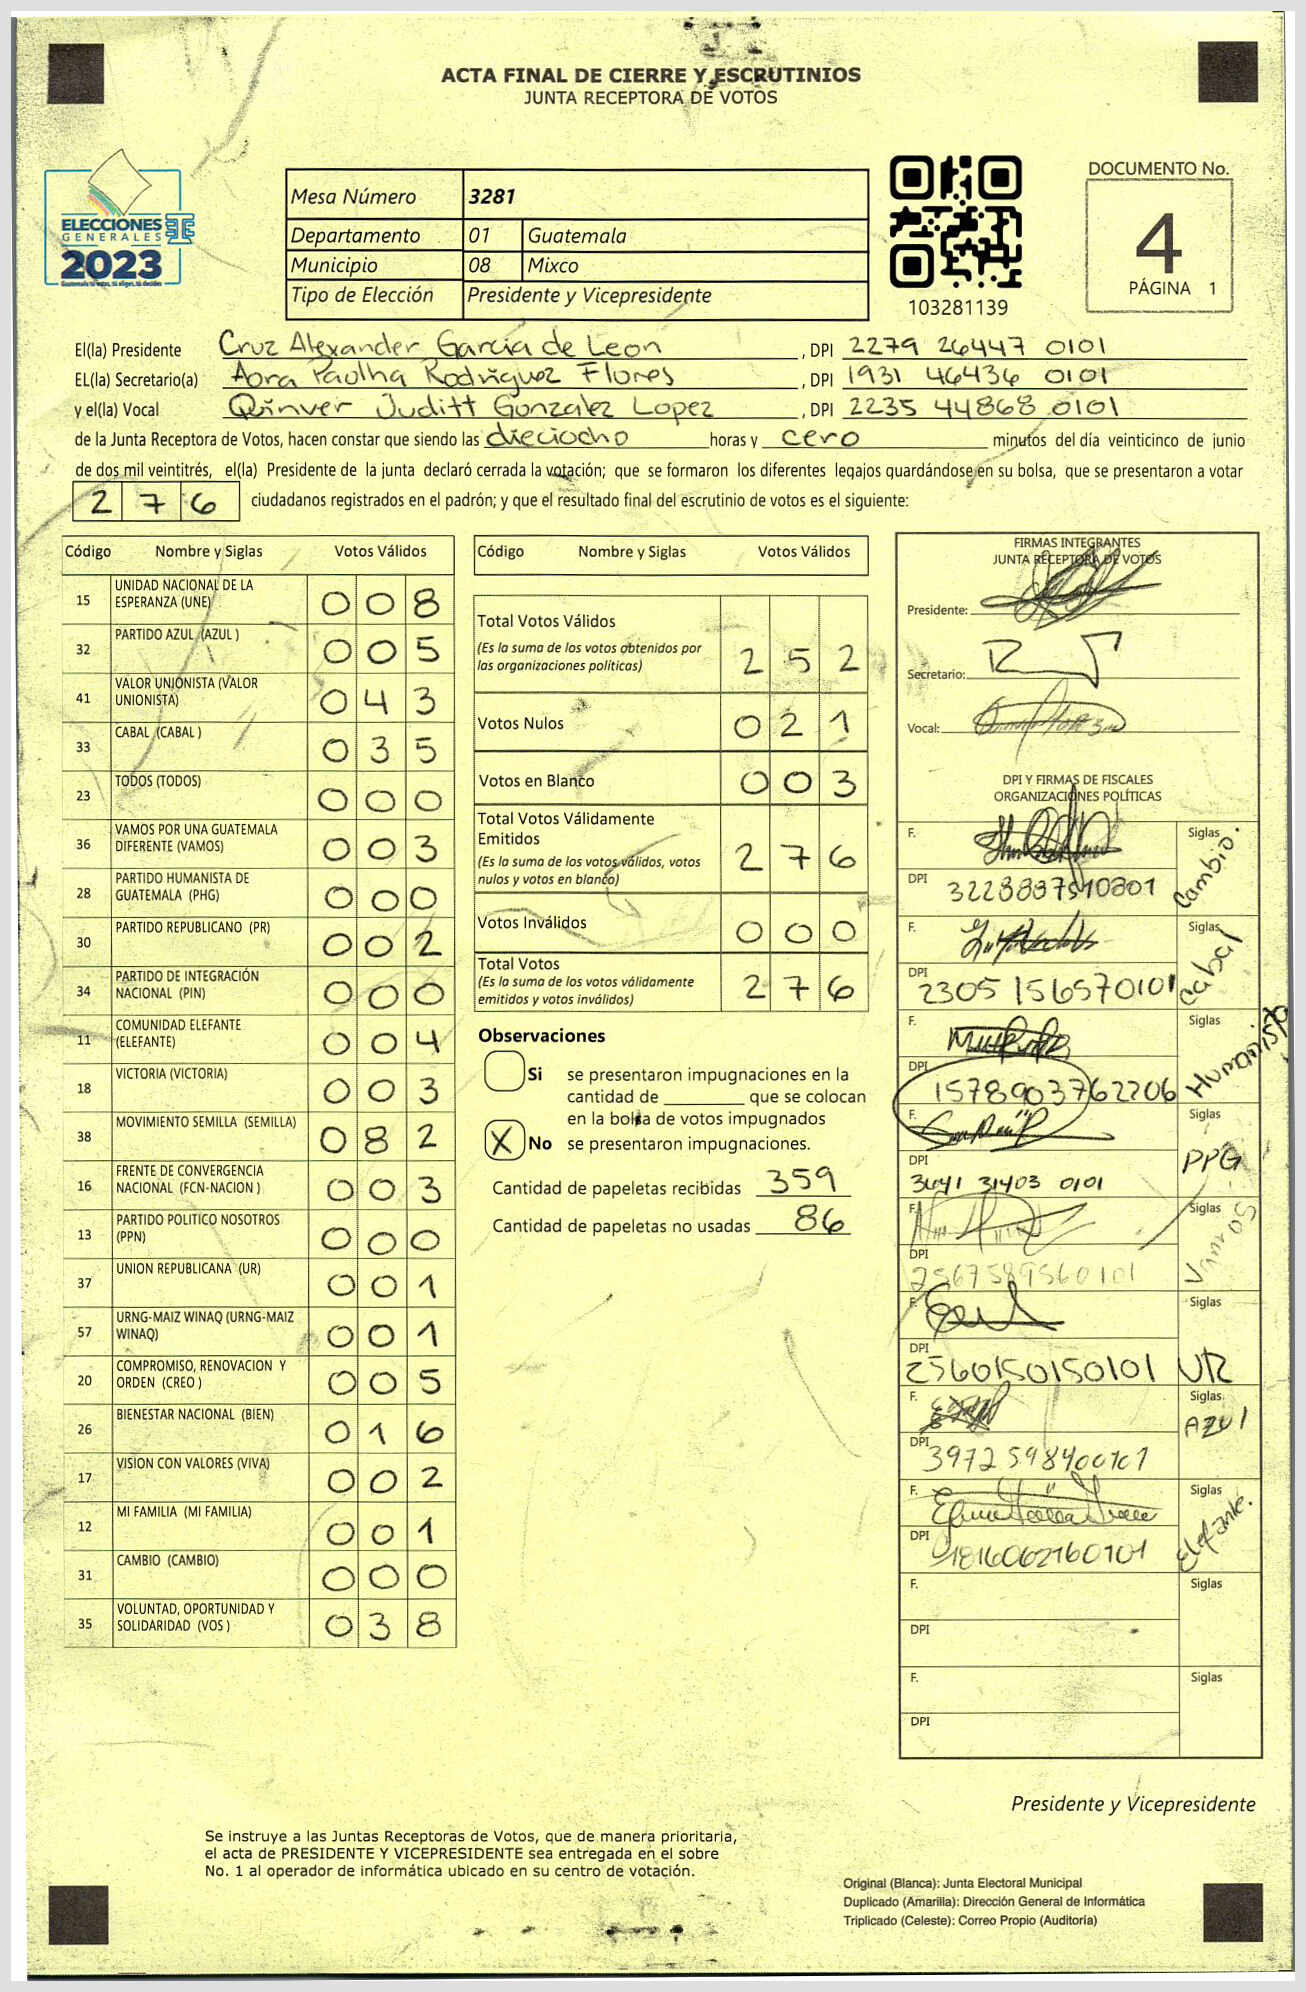 ACTA FINAL DE CIERRE Y ESCRUTINIOS
JUNTA RECEPTORA DE VOTOS
ELECCIONES
GENERALES
2023
Mesa Número 3281
Departamento 01 Guatemala
Municipio 08 Mixco
Tipo de Elección Presidente y Vicepresidente
103281139
DOCUMENTO No.
4
PÁGINA 1
El(la) Presidente Cruz Alexander Garcia de Leon, DPI 2279 26447 0101
EL(la) Secretario(a) Rodriguez Flores, DPI 1931 46436 0101
y el(la) Vocal Quinver Juditt Gonzalez Lopez, DPI 2235 44868 0101
de la Junta Receptora de Votos, hacen constar que siendo las dieciocho horas y cero minutos del día veinticinco de junio
de dos mil veintitrés, el(la) Presidente de la junta declaró cerrada la votación; que se formaron los diferentes legajos guardándose en su bolsa, que se presentaron a votar
276 ciudadanos registrados en el padrón; y que el resultado final del escrutinio de votos es el siguiente:
Código Nombre y Siglas Votos Válidos
15 UNIDAD NACIONAL DE LA ESPERANZA (UNE) 008
32 PARTIDO AZUL (AZUL ) 005
41 VALOR UNIONISTA (VALOR UNIONISTA) 043
33 CABAL (CABAL ) 035
23 TODOS (TODOS) 000
36 VAMOS POR UNA GUATEMALA DIFERENTE (VAMOS) 003
28 PARTIDO HUMANISTA DE GUATEMALA (PHG) 000
30 PARTIDO REPUBLICANO (PR) 002
34 PARTIDO DE INTEGRACIÓN NACIONAL (PIN) 000
11 COMUNIDAD ELEFANTE (ELEFANTE) 004
18 VICTORIA (VICTORIA) 003
38 MOVIMIENTO SEMILLA (SEMILLA) 082
16 FRENTE DE CONVERGENCIA NACIONAL (FCN-NACION ) 003
13 PARTIDO POLITICO NOSOTROS (PPN) 000
37 UNION REPUBLICANA (UR) 001
57 URNG-MAIZ WINAQ (URNG-MAIZ WINAQ) 001
20 COMPROMISO, RENOVACION Y ORDEN (CREO ) 005
26 BIENESTAR NACIONAL (BIEN) 016
17 VISION CON VALORES (VIVA) 002
12 MI FAMILIA (MI FAMILIA) 001
31 CAMBIO (CAMBIO) 000
35 VOLUNTAD, OPORTUNIDAD Y SOLIDARIDAD (VOS ) 038
Código Nombre y Siglas Votos Válidos
Total Votos Válidos 252
(Es la suma de los votos obtenidos por
las organizaciones políticas)
Votos Nulos 021
Votos en Blanco 003
Total Votos Válidamente
Emitidos 276
(Es la suma de los votos válidos, votos
nulos y votos en blanco)
Votos Inválidos 000
Total Votos 276
(Es la suma de los votos válidamente
emitidos y votos inválidos)
Observaciones
Si se presentaron impugnaciones en la
cantidad de ________ que se colocan
en la bolsa de votos impugnados
X No se presentaron impugnaciones.
Cantidad de papeletas recibidas 359
Cantidad de papeletas no usadas 86
FIRMAS INTEGRANTES
JUNTA RECEPTORA DE VOTOS
Presidente:
Secretario:
Vocal:
DPI Y FIRMAS DE FISCALES
ORGANIZACIONES POLÍTICAS
F. Siglas Cambio.
DPI 3228837510301
F. Siglas cabal
DPI 2305 156570101
F. Siglas Humanista
DPI 1578903762206
F. Siglas PPG
DPI 3041 31403 0101
F. Siglas
DPI 2567589560101
F. Siglas UR
DPI 2560150150101
F. Siglas AZUl
DPI 3972598400101
F. Siglas Elefante.
DPI 1816062160101
F. Siglas
DPI
F. Siglas
DPI
Presidente y Vicepresidente
Se instruye a las Juntas Receptoras de Votos, que de manera prioritaria,
el acta de PRESIDENTE Y VICEPRESIDENTE sea entregada en el sobre
No. 1 al operador de informática ubicado en su centro de votación.
Original (Blanca): Junta Electoral Municipal
Duplicado (Amarilla): Dirección General de Informática
Triplicado (Celeste): Correo Propio (Auditoría)